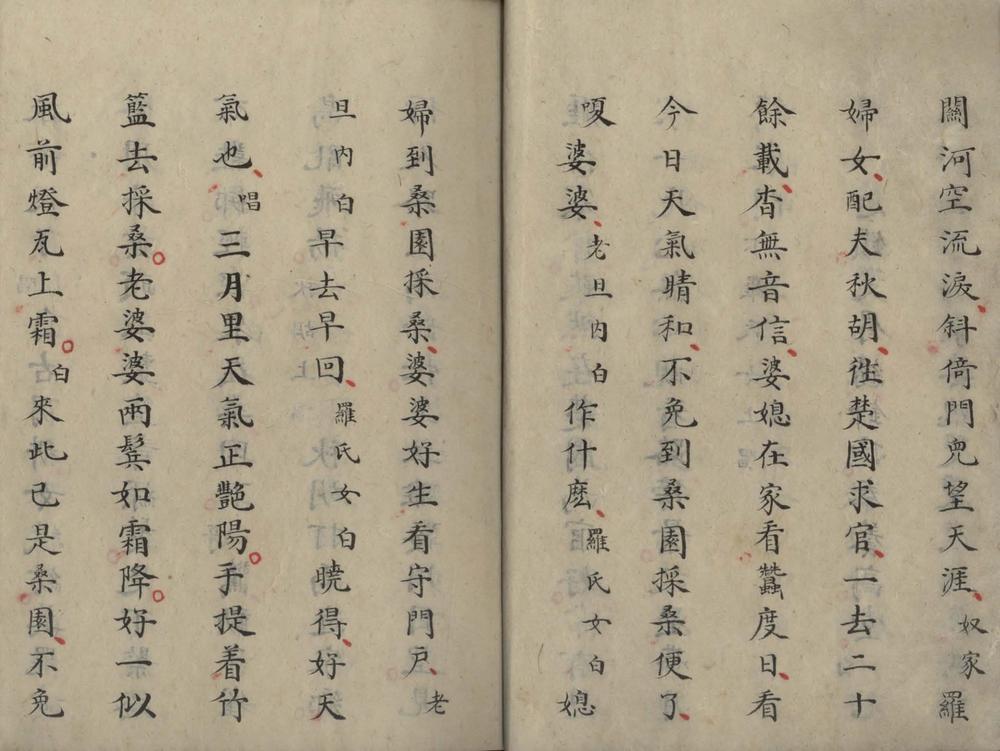 關河空流淚斜倚門兒望天涯奴家羅
婦女配夫秋胡徃楚國求官一去二十
餘載杳無音信婆媳在家看蠶度日看
今日天氣晴和不免到桑園採桑便了
嗄婆婆老旦内白作什麽羅氏女白媳
婦到桑園採桑婆婆好生看守門戶老
旦内白早去早回羅氏女白曉得好天
氣也唱三月里天氣正艷陽手提着竹
籃去採桑老婆婆兩鬂如霜降好一似
風前燈瓦上霜白來此已是桑園不免